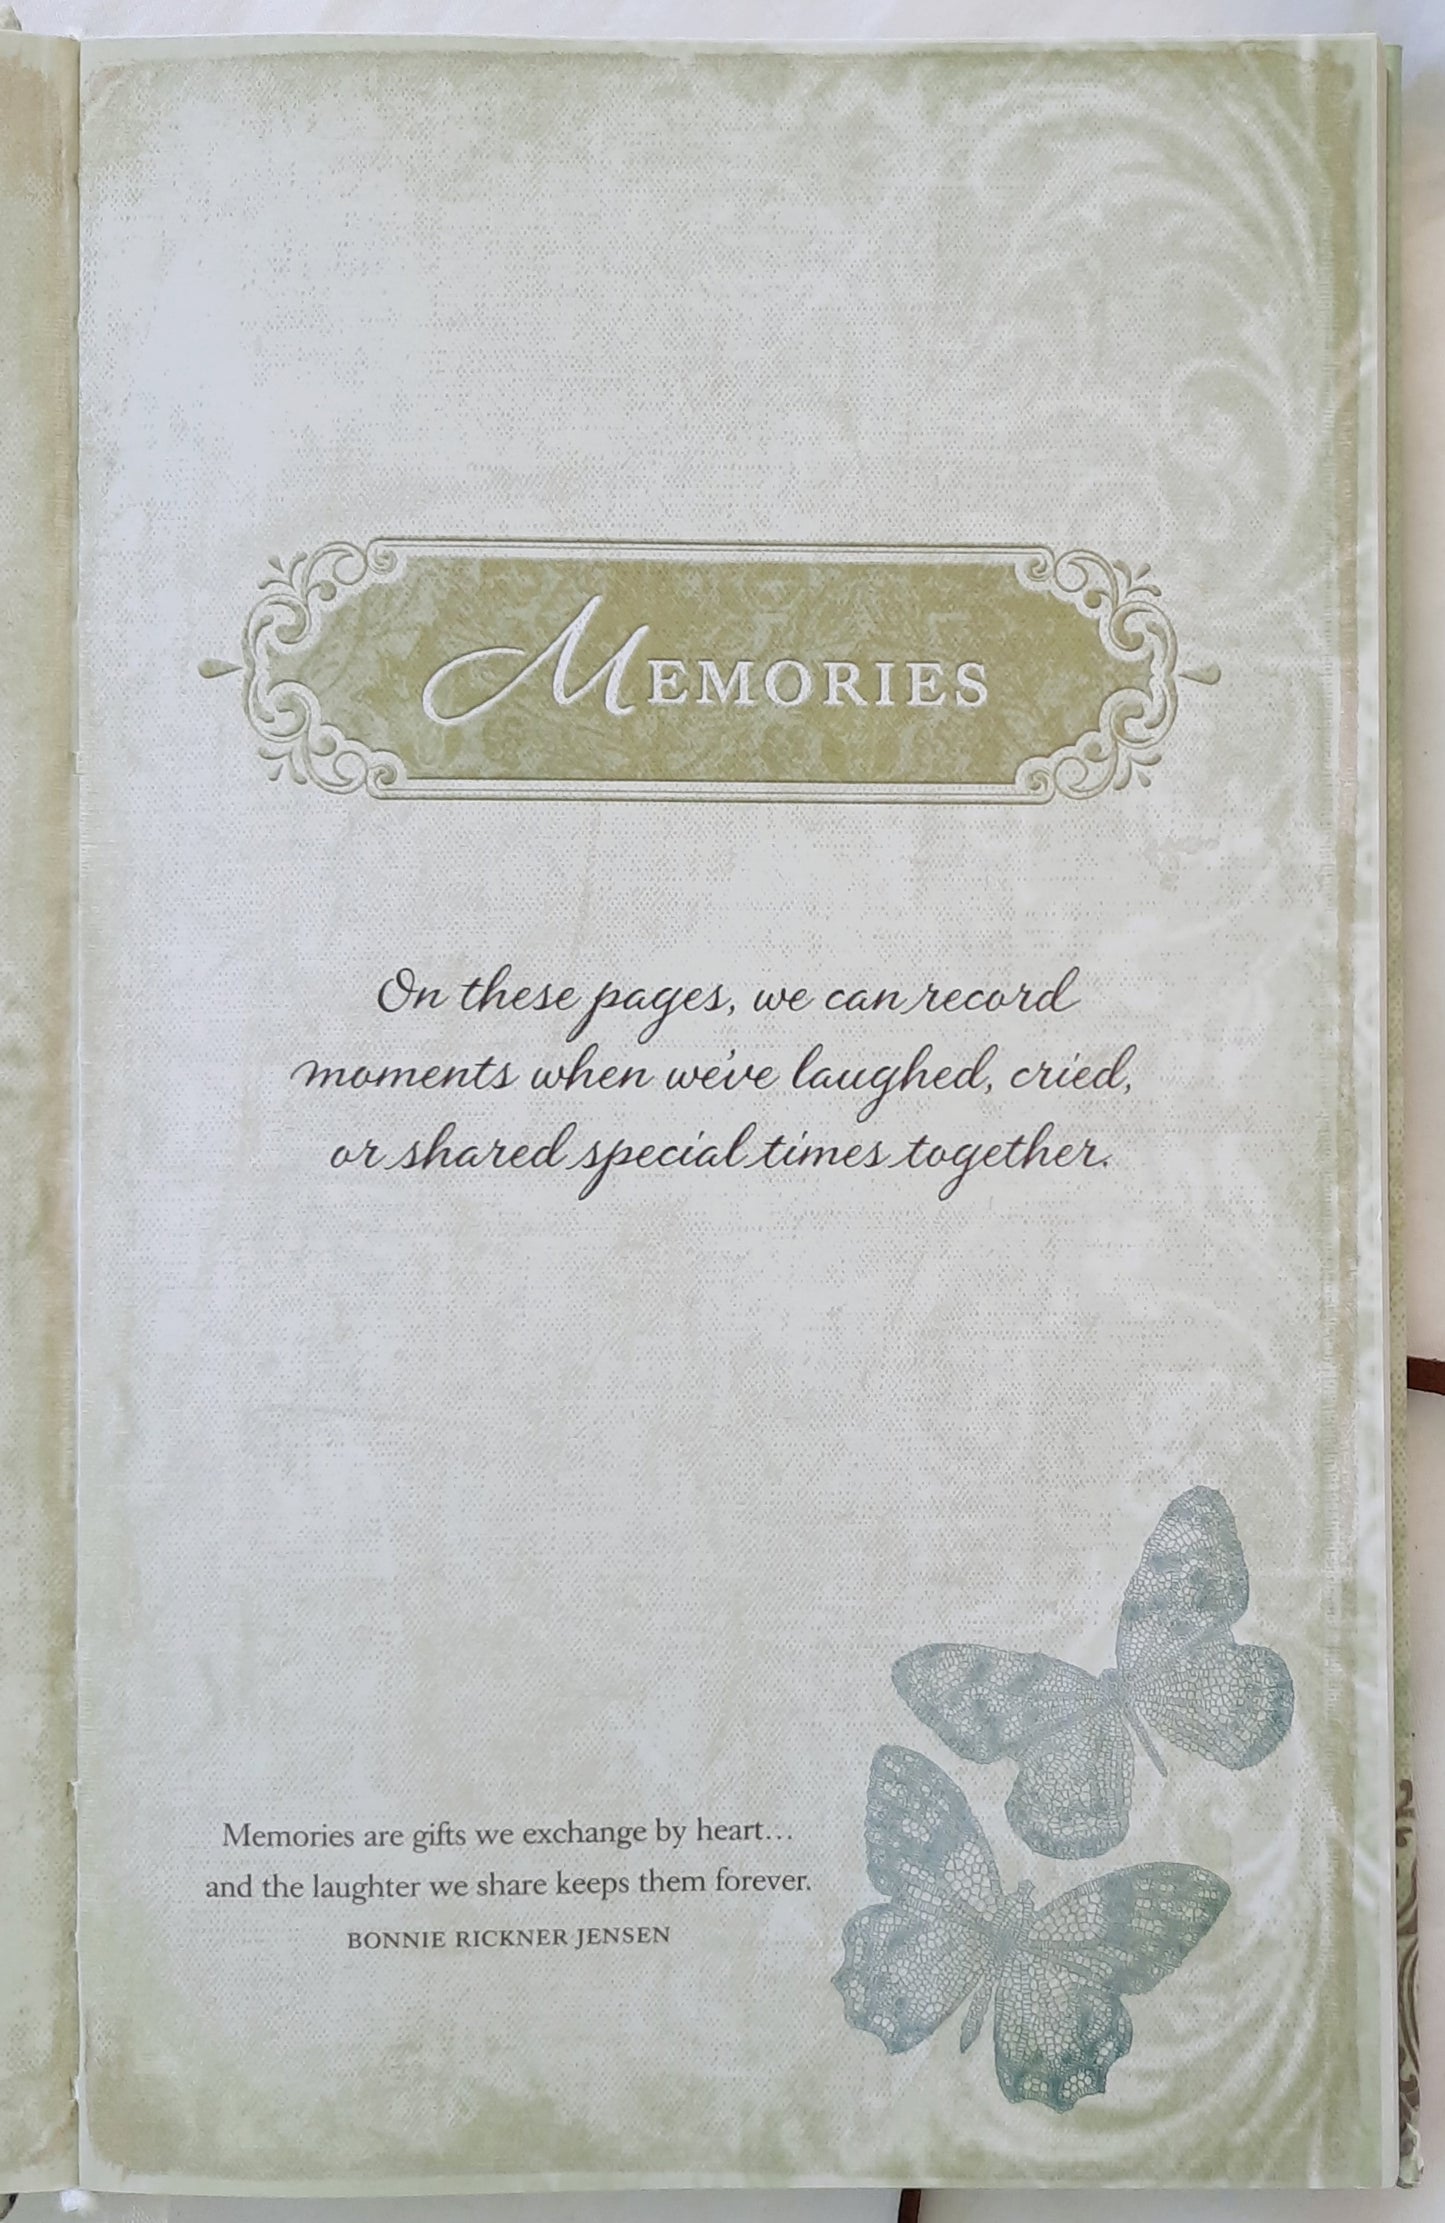 MEMORIES
On these pages, we can record
moments when we've laughed, cried,
or shared special times together.
Memories are gifts we exchange by heart…
and the laughter we share keeps them forever.
BONNIE RICKNER JENSEN